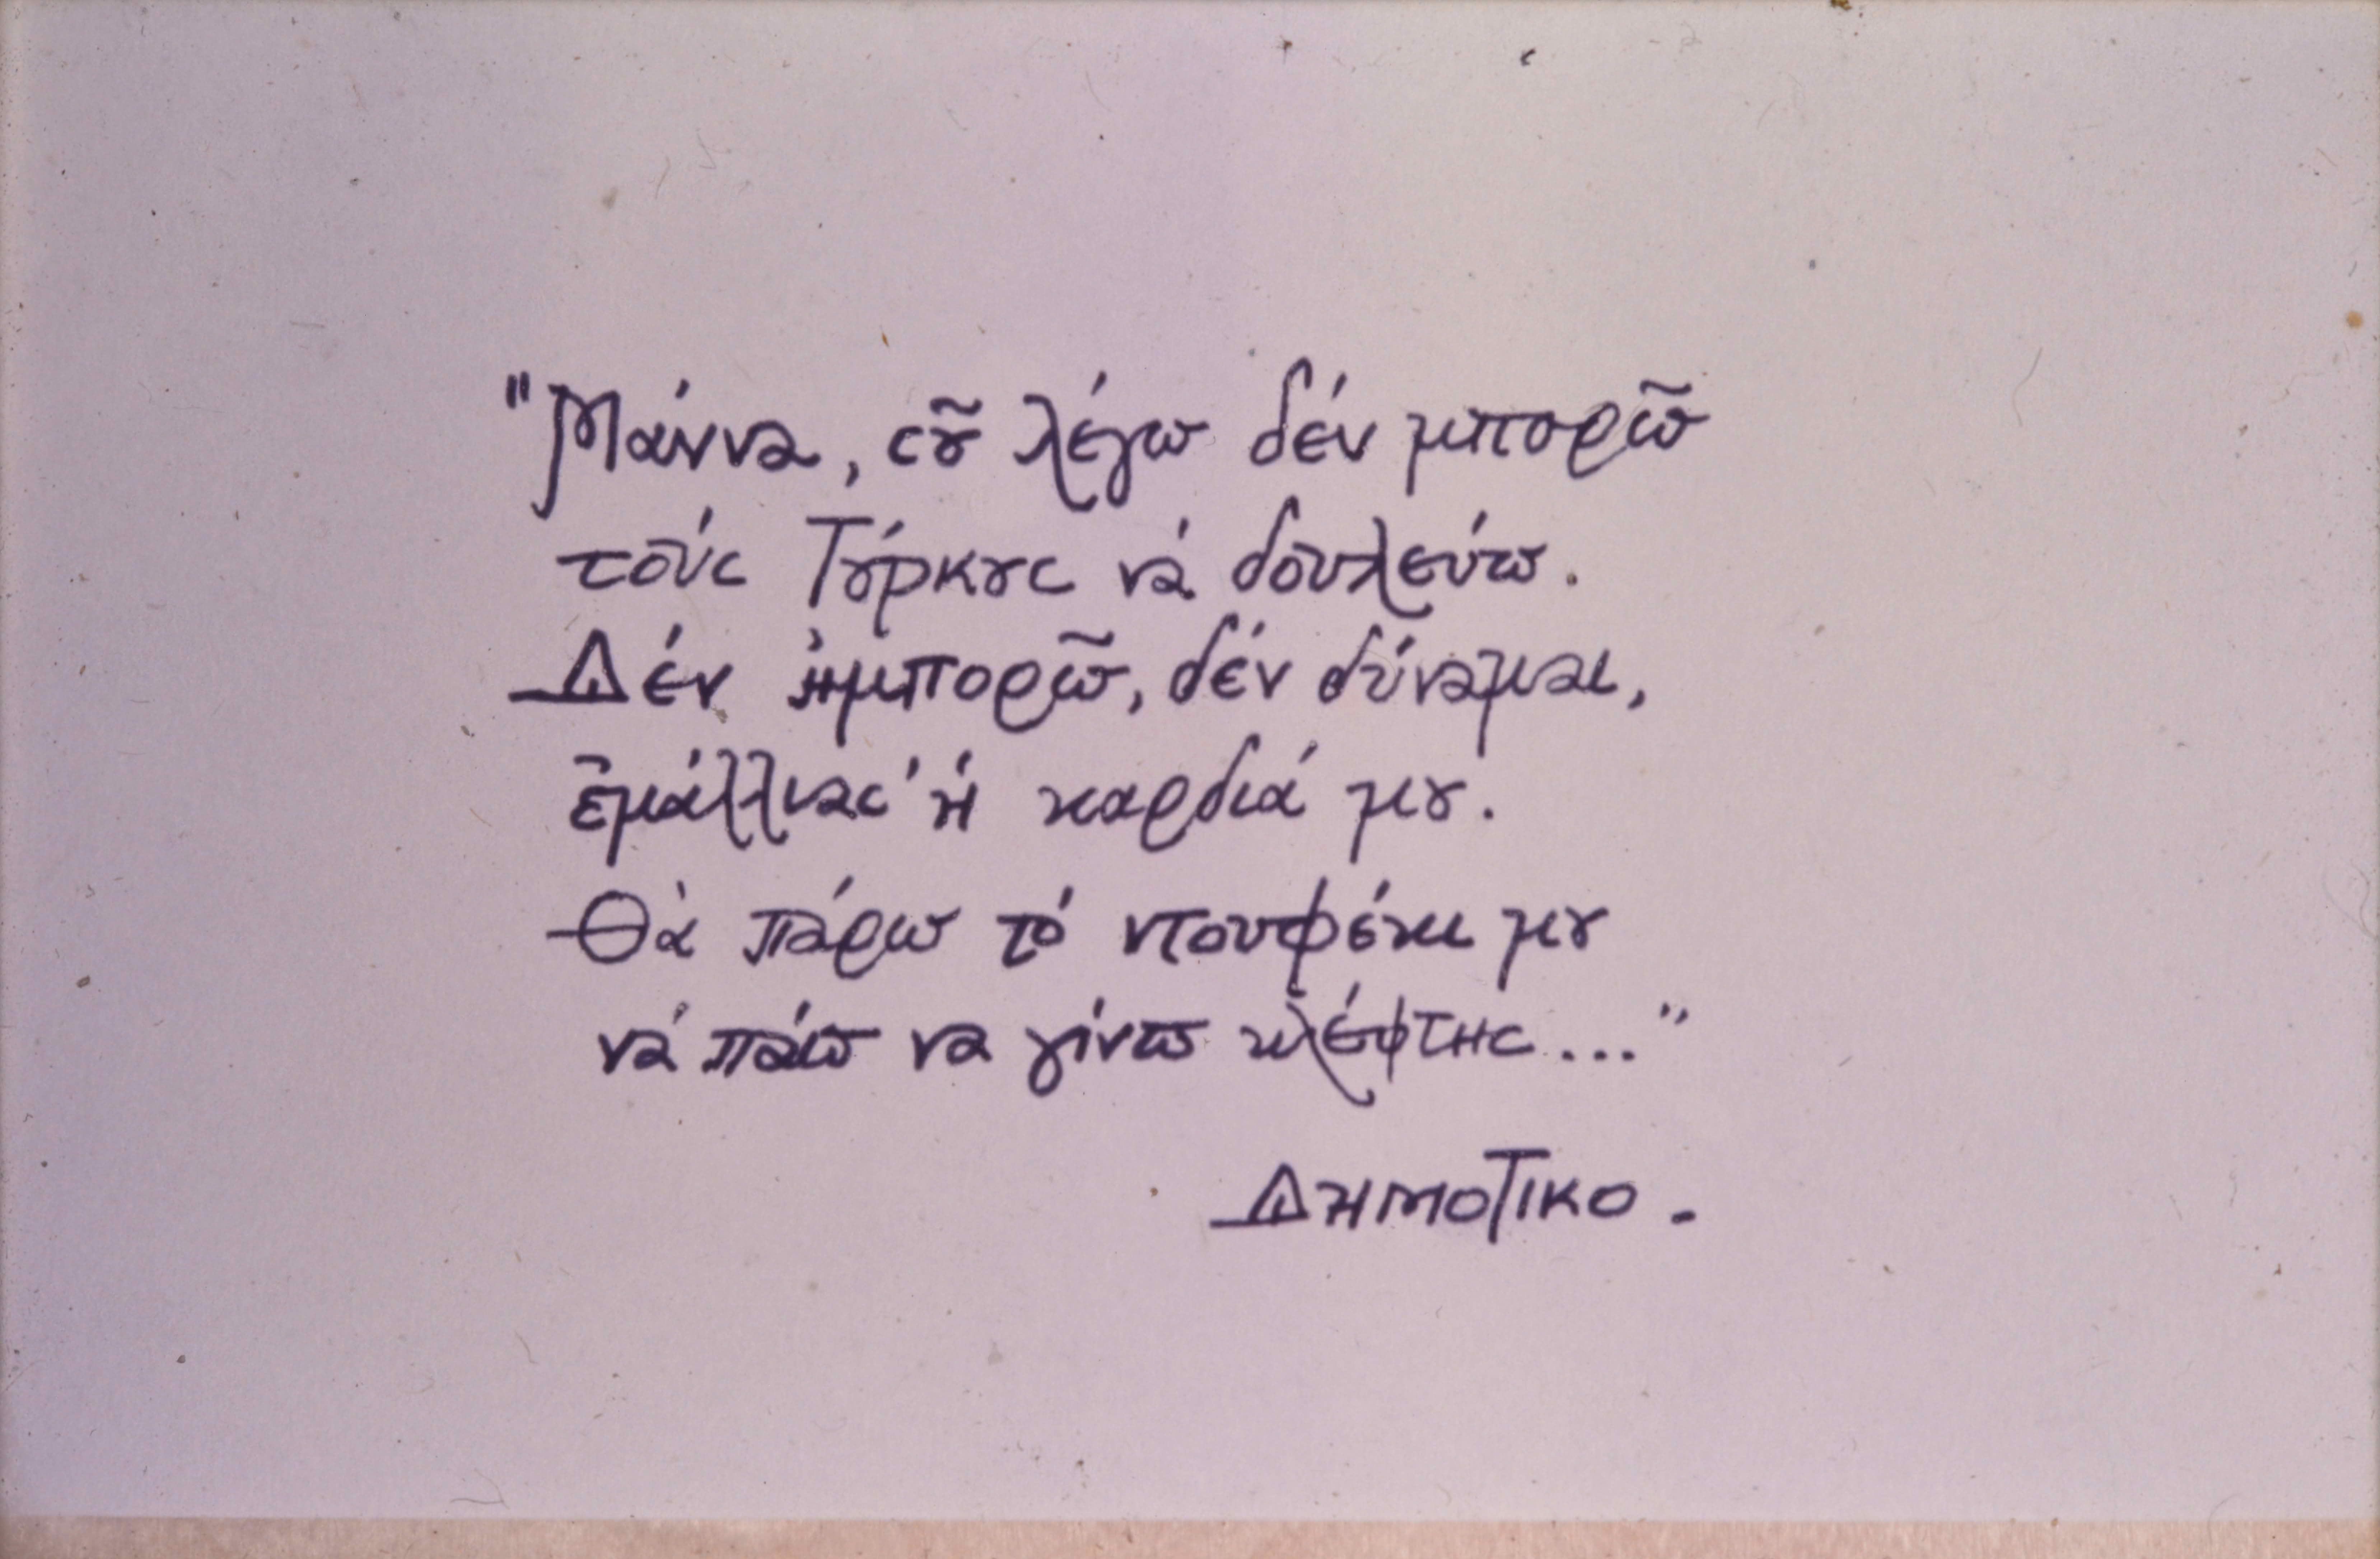 "Μάννα, σοῦ λέγω δέν μπορῶ
τούς Τούρκους νά δουλεύω.
Δέν ἠμπορῶ, δέν δύναμαι,
ἐμάλλιασ' ἡ καρδιά μου.
Θά πάρω τό ντουφέκι μου
νά πάω να γίνω κλέφτης..."
ΔΗΜΟΤΙΚΟ.